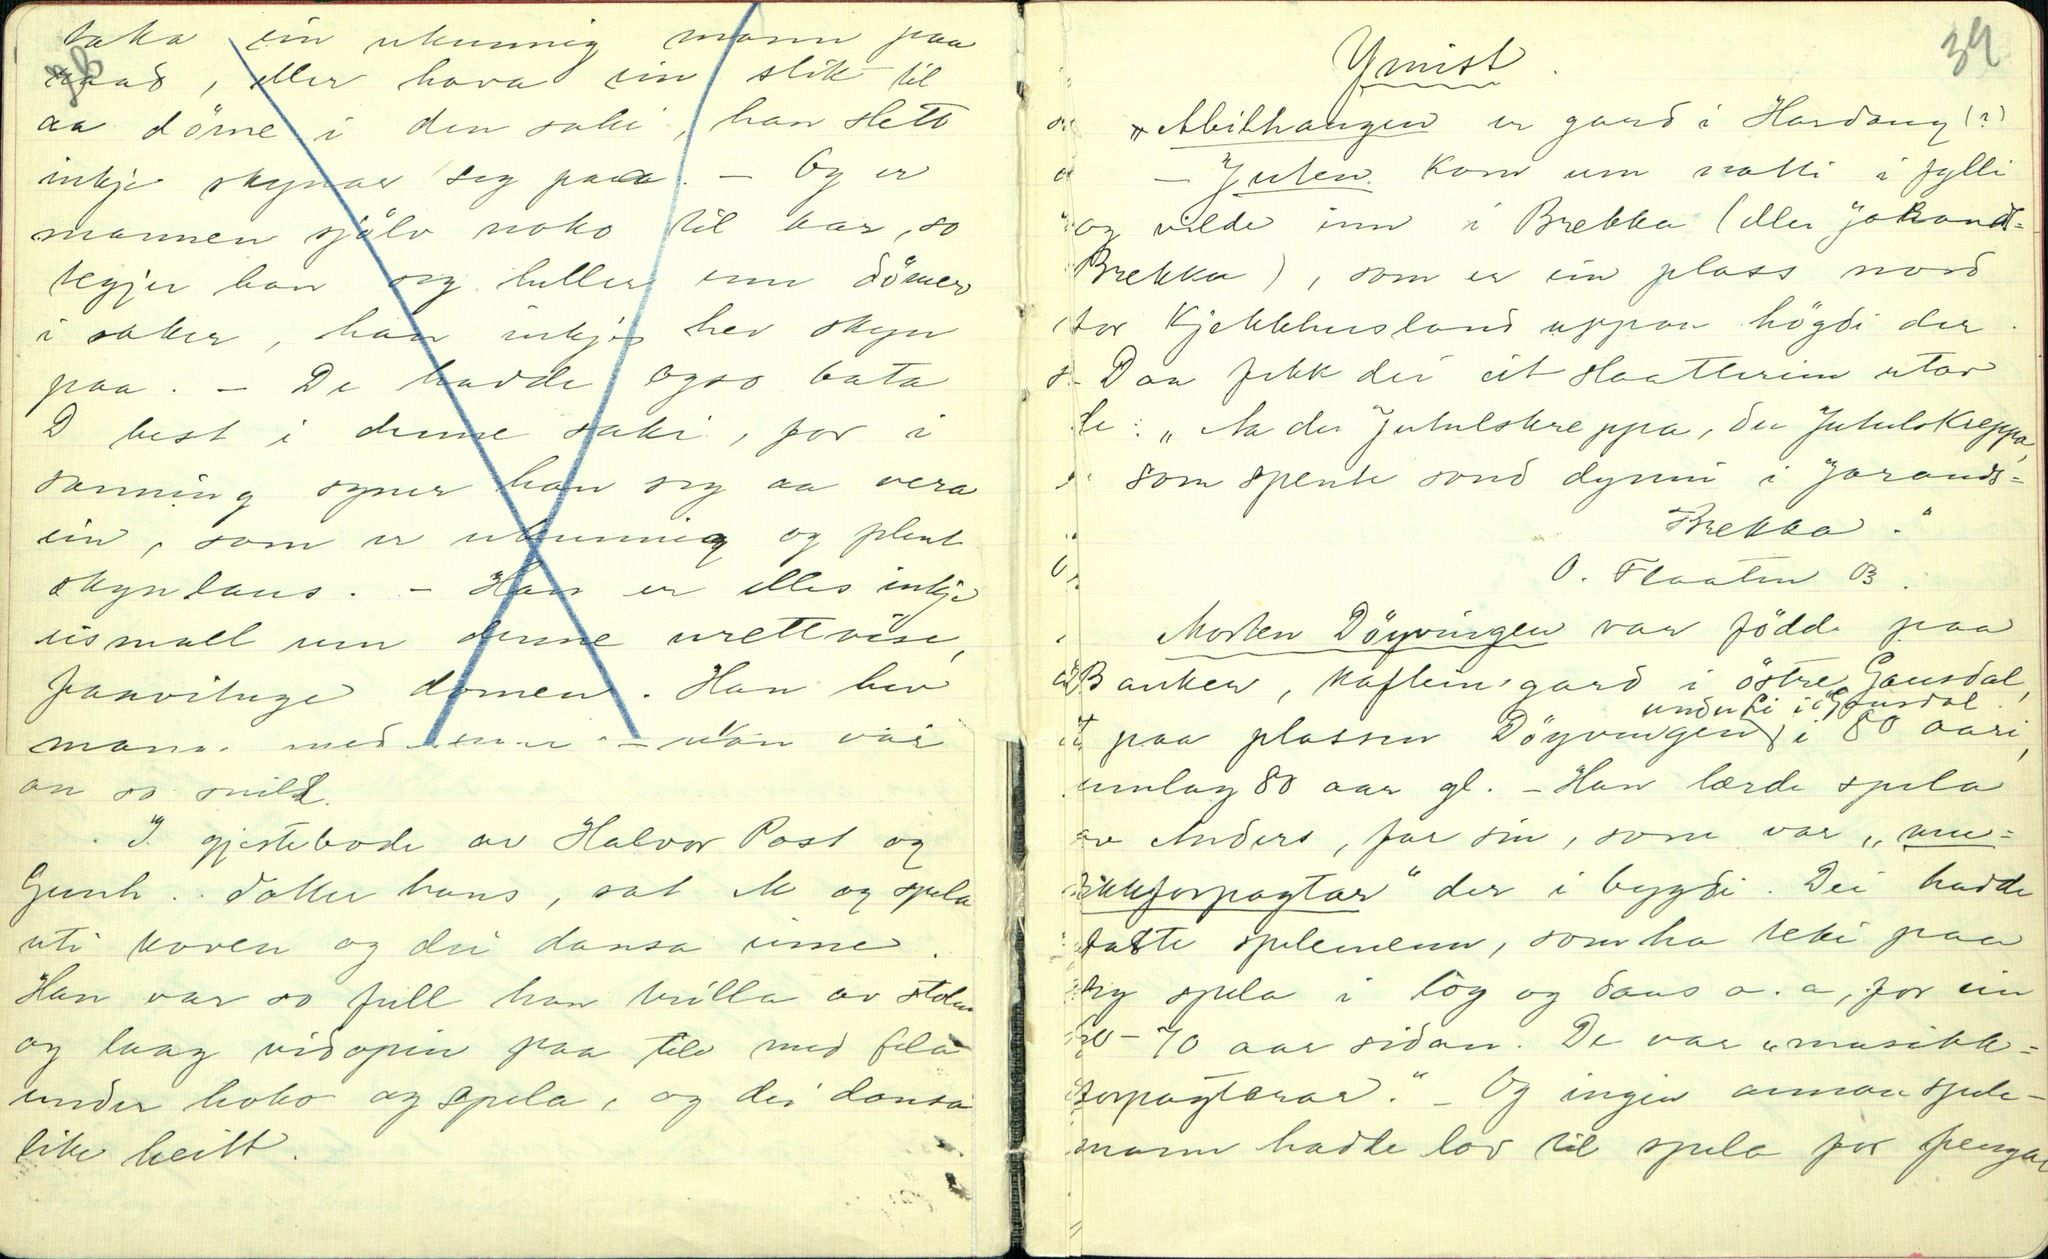 taka ein ukunnig mann paa
raad, eller hava ein slik til
aa döme i den saki, han slett
inkje skynar seg paa. – Og er
mannen sjölv noko til kar, so
segjer han seg heller enn dömer
i saker, han inkje hev skyn
paa. – De hadde ogso bata
D best i denne saki, for i
sanning syner han seg aa vera
ein, som er ukunnig og plent
skynlaus. – Han er elles inkje
eismall um denne urettvise,
faavituge domen. Han hev
mana med
an so snild.
I gjestebode av Halvor Post og
Gunh. dotter hans, sat M og spela
uti koven og dei dansa inne.
Han var so full han trilla av stolen
og laag vidopin paa tile med fela
under hoko og spela, og dei dansa
like heilt.
34
Ymist.
"Abilhaugen er gard i Hardang (?)
– Juten kom um natti i fylli
og vilde inn i Brekka (eller Jorands=
Brekka), som er ein plass nord
for Kjekkhusland uppaa högdi der.
– Daa fekk dei eit slaatterim utav
de: "Aa du Jutulskreppa, du Jutulskreppa,
som spente sond dynni i Jorands=
Brekka."
O. Flaaten B.
Morten Döyvingen var född paa
Banker, kaptein-gard i östre Gausdal,
paa plassen Döyvingen under i Gausdal i 80 aari,
umlag 80 aar gl. – Han lærde spela
av Anders, far sin, som var "mu=
sikkforpagtar" der i bygdi. Dei hadde
faste spelemenn, som ha teki paa
seg spela i log og dans o. a, for ein
60–70 aar sidan. De var "musikk=
forpagtarar." – Og ingen annan spele-
mann hadde lov til spela for pengar